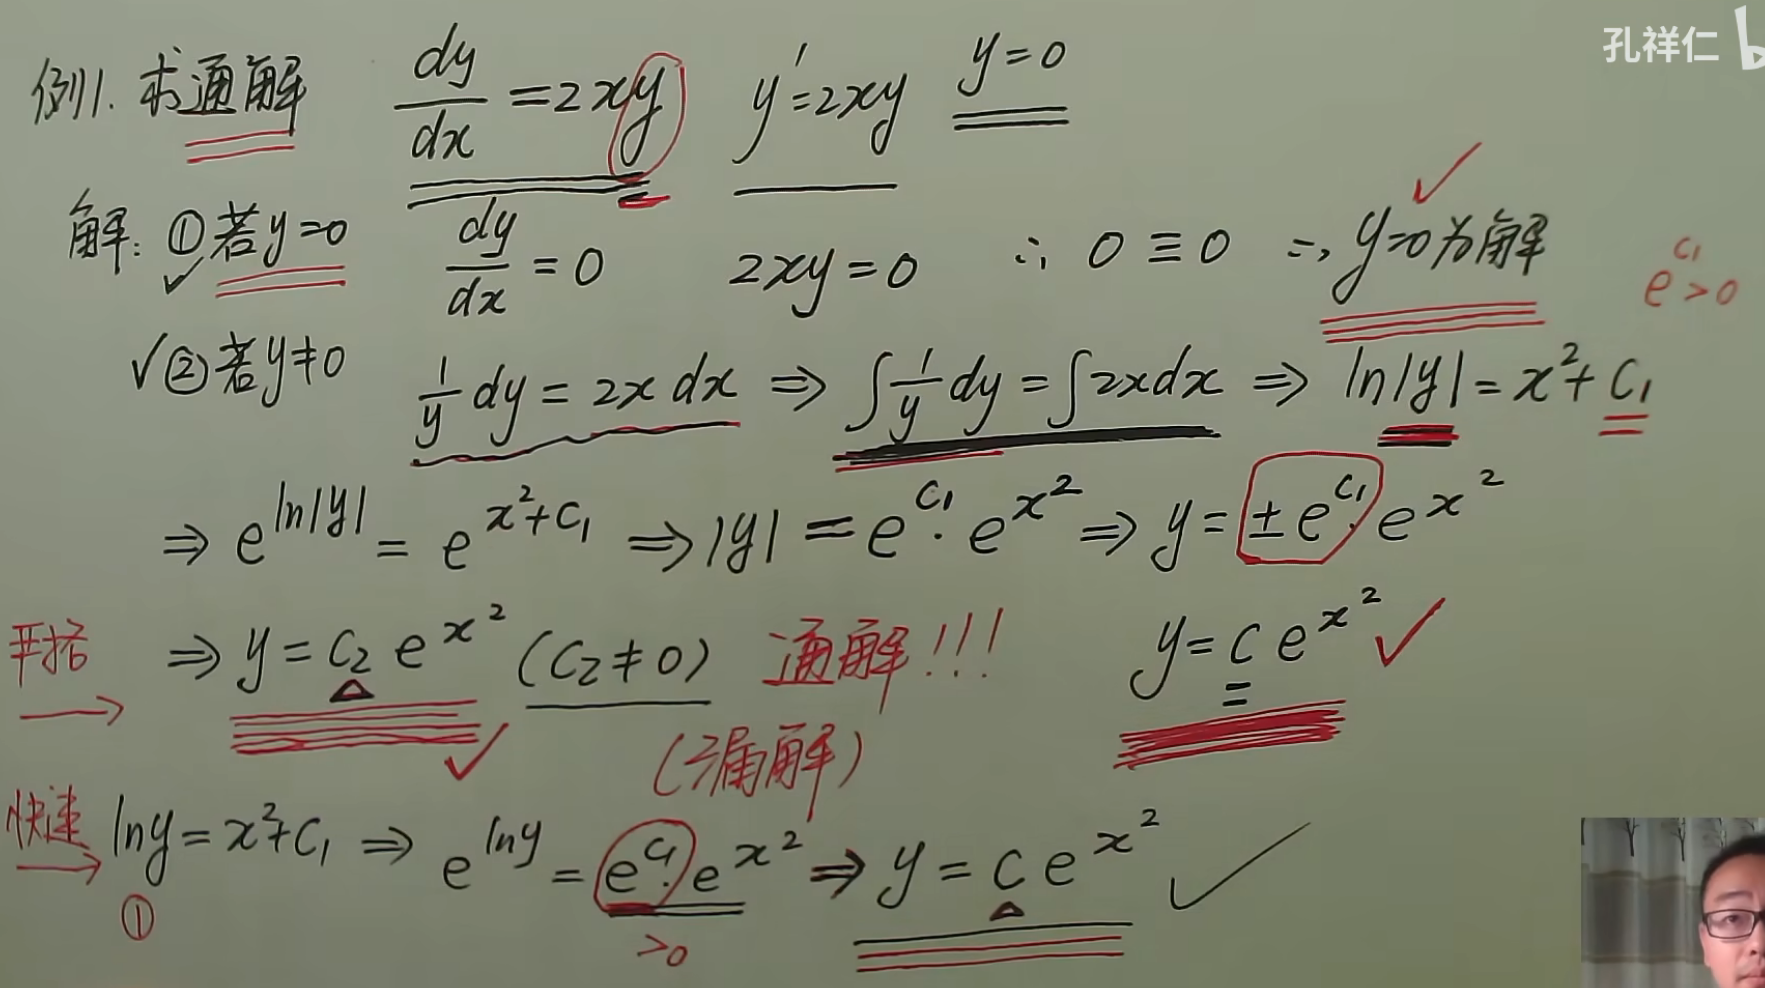 孔祥仁 b
例1. 求通解 dy/dx = 2xy y' = 2xy y = 0
解: ① 若y=0 dy/dx = 0 2xy = 0 ∴ 0 ≡ 0 ∴ y=0为解
e^{C₁} > 0
② 若y≠0 1/y dy = 2x dx ⇒ ∫ 1/y dy = ∫ 2x dx ⇒ ln|y| = x² + C₁
⇒ e^{ln|y|} = e^{x²+C₁} ⇒ |y| = e^{C₁} · e^{x²} ⇒ y = ± e^{C₁} · e^{x²}
⇒ y = C₂ e^{x²} (C₂ ≠ 0) 通解!!! y = C e^{x²}
(漏解)
快速 ln y = x² + C₁ ⇒ e^{ln y} = e^{C₁} · e^{x²} ⇒ y = C e^{x²}
① >0